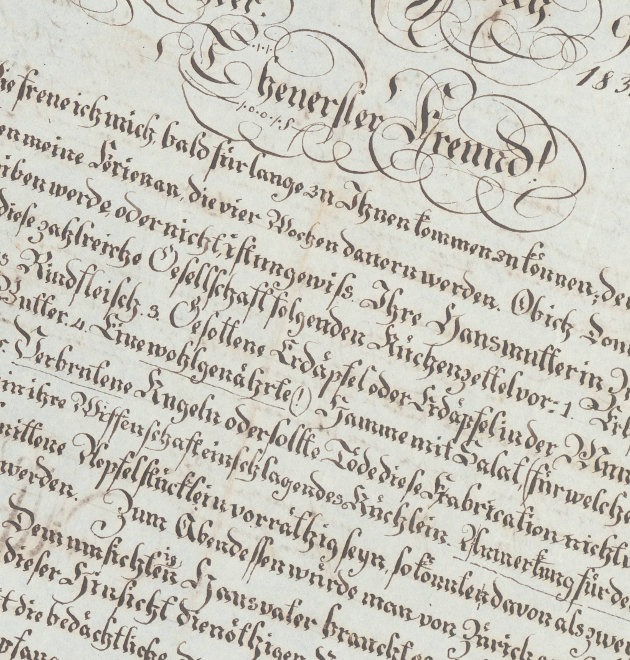 183
Theuerster Freund!
freue ich mich, bald für lange zu Ihnen kommen zu können, de
en meine Ferien an, die vier Wochen dauern werden. Ob ich
iben werde, oder nicht, ist ungewiß. Ihre Hausmutter in
diese zahlreiche Gesellschaft folgenden Küchenzettel vor: 1.
Rindfleisch. 3. Gesottene Erdäpfel oder Erdäpfel in der
Butter. 4. Eine wohlgenährte (!) Hamme mit Salat (für welche
Verbratene Kugeln oder sollte Tode diese Fabrication nicht
in ihre Wissenschaft einschlagendes Küchlein. Anmerkung für de
Aepfelstücklein vorräthig seyn, so könnten davon als zwe
werden. Zum Abendessen würde man von Zürich
Dem umsichtigen Hausvater
dieser Hinsicht die nöthigen
die bedächtliche